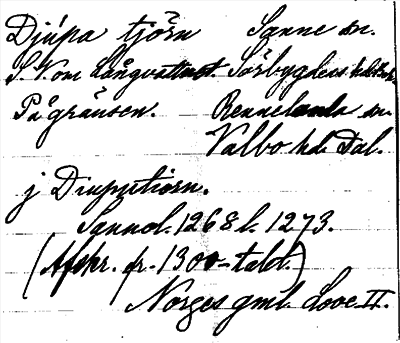 Djúpa tjörn Sanne sn.
S.V. om Långvattnet. Sörbygdens hd.
På gränsen. Rennelanda sn.
Valbo hd. Dal.
j Diupatiorn.
Sannol. 1268 l. 1273.
(Afskr. fr. 1300-talet.)
Norges gml. Love II.